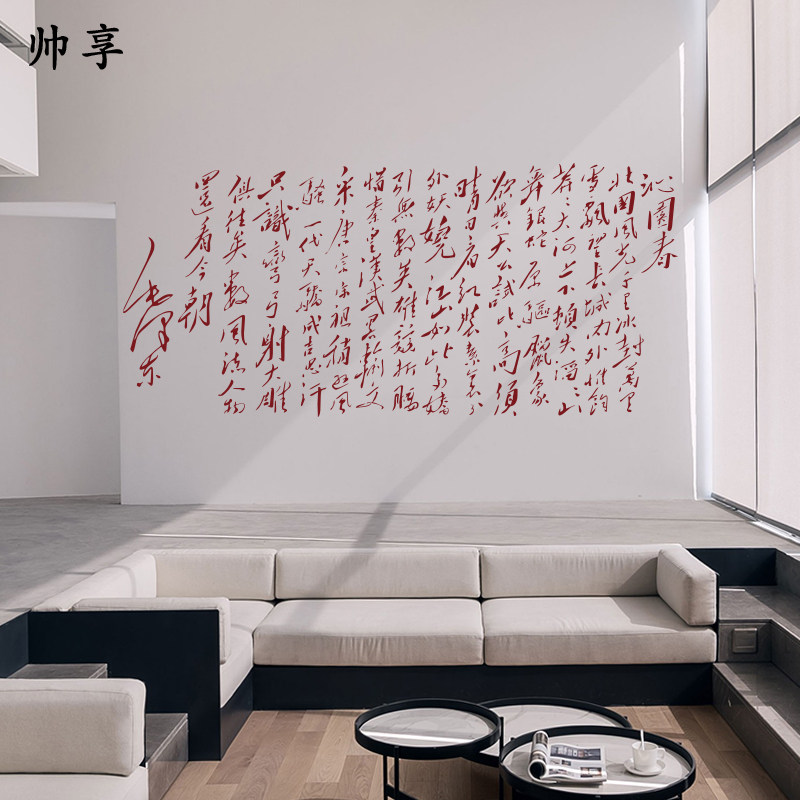 帅享
沁園春
北國風光千里冰封萬里
雪飄望長城內外惟餘
莽々大河上下頓失滔々山
舞銀蛇原驅臘象
欲與天公試比高須
晴日看紅裝素裹分
外妖嬈江山如此多嬌
引無數英雄競折腰
惜秦皇漢武略輸文
采唐宗宋祖稍遜風
騷一代天驕成吉思汗
只識彎弓射大雕
俱往矣數風流人物
還看今朝
毛澤東